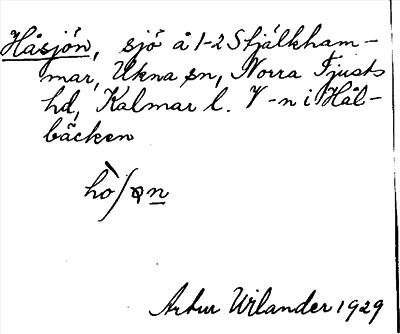 Håsjön, sjö å 1-2 Stjälkham-
mar, Ukna sn, Norra Tjusts
hd, Kalmar l. V-n i Hål-
bäcken
Artur Wilander 1929